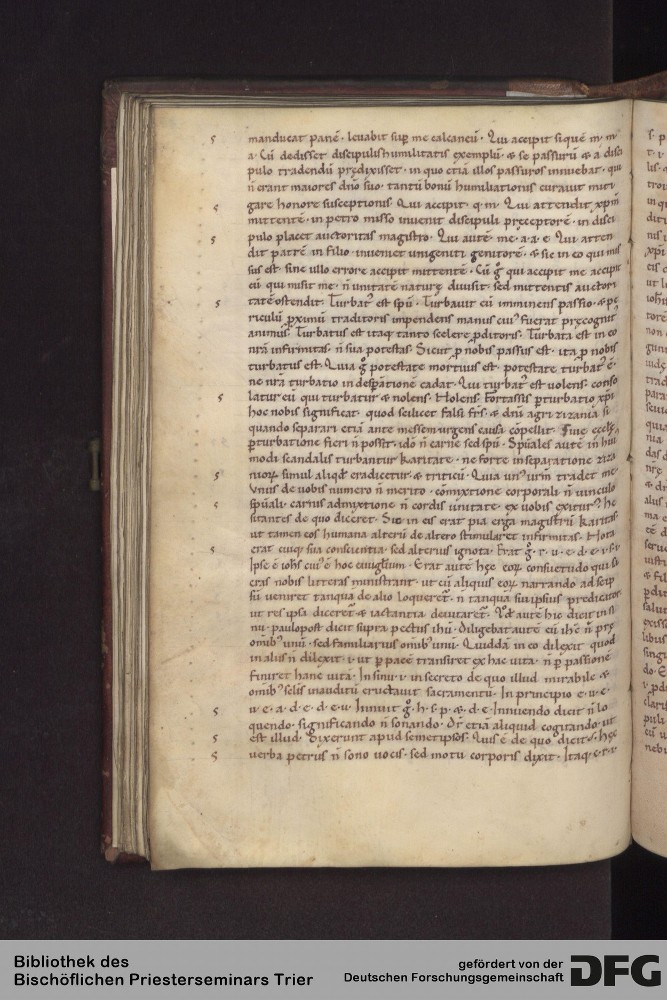 manducat panē · levabit sup me calcaneū · Qui accipit siquē m · m
a · Cū dedisset discipulis humilitatis exemplū · & se passurū & a disci
pulo tradendū prędixisset · in quo etiā illos passuros innuebat · qui
n̄ erant maiores dn̄o suo · tantū bonū humiliationis curavit miti
gare honore susceptionis · Qui accipit · q · m · Qui attendit xp̄m
mittentē · in petro misso invenit discipuli pręceptorē · in disci
pulo placet auctoritas magistro · Qui autē · me · a · a · e · Qui atten
dit patrē in filio · inveniet unigeniti genitorē · & sic in eo qui mis
sus est · sine ullo errore accipit mittentē · Cū g̊ qui accipit me accipit
eū qui misit me · n̄ unitatē naturę divisit · sed mittentis auctori
tatē ostendit · Turbat᷒ est spū · Turbavit eū imminens passio · & pe
riculū proximū traditoris impendens manus cui᷒ fuerat pręcognit᷒
animus · Turbatus est itaq; tanto scelere pditoris · Turbata est in eo
nr̄a infirmitas · n̄ sua potestas · Sicut p nobis passus est · ita p nobis
turbatus est · Quia g̊ potestate mortuus est · potestate turbat᷒ ē ·
ne nr̄a turbatio in desperationē cadat · Qui turbat᷒ est volens · conso
latur eū qui turbatur & nolens · Fortassis pturbatio xp̄i
hoc nobis significat · quod scilicet falsi frs̄ · & dn̄i agri zizania si
quando separari etiā ante messem urgens causa cōpellit · sine eccłę
pturbatione fieri n̄ possit · ido n̄ carne sed spū · Spūales autē in hui᷒
modi scandalis turbantur karitate · ne forte in separatione ziza
nioꝝ · simul aliqd eradicetur & triticū · Quia un᷒ vr̄m tradet me ·
Vnus de vobis numero n̄ merito · cōmixtione corporali n̄ vinculo
spūali · carnis admixtione n̄ cordis unitate · ex vobis exitur᷒ · He
sitantes de quo diceret · Sic in eis erat pia erga magistrū karitas ·
ut tamen eos humana alterū de altero stimularet infirmitas · Nota
erat cuiq; sua conscientia · sed alterius ignota · Erat g̊ · r · u · e · d · e · v · s · i
Ipse ē ioh̄s cui᷒ ē hoc euuḡlium · Erat autē hęc eoꝝ consuetudo qui sa
cras nobis litteras ministrant · ut cū aliquis eoꝝ narrando ad seip
sū veniret tanquā de alio loqueret᷒ · n̄ tanquā sui ipsius predicator
ut res ipsa diceret᷒ & iactantia devitaret᷒ · Qd autē hic dicit in si
nu · paulopost dicit supra pectus ihū · Diligebat autē eū ihc n̄ prę
om̄ib᷒ unū · sed familiarius om̄ib᷒ unū · Quiddā in eo dilexit quod
in aliis n̄ dilexit · i · ut p pacē transiret ex hac vita · n̄ p passionē
finiret hanc vitā · In sinu · i · in secreto de quo illud mirabile &
om̄ib᷒ sclis inauditū eructavit sacramentū · In principio · e · v · e ·
v · e · a · d · e · d · e · v · Innuit g̊ · h · s · p · & · d · e · Innuendo dicit n̄ lo
quendo · significando n̄ sonando · Dr̄ etiā aliquid cogitando · ut
est illud · Dixerunt apud semetipsos · Quis ē de quo dicit · Hęc
verba petrus n̄ sono vocis · sed motu corporis dixit · Itaq; · c · r · i
Bibliothek des
Bischöflichen Priesterseminars Trier
gefördert von der
Deutschen Forschungsgemeinschaft
DFG